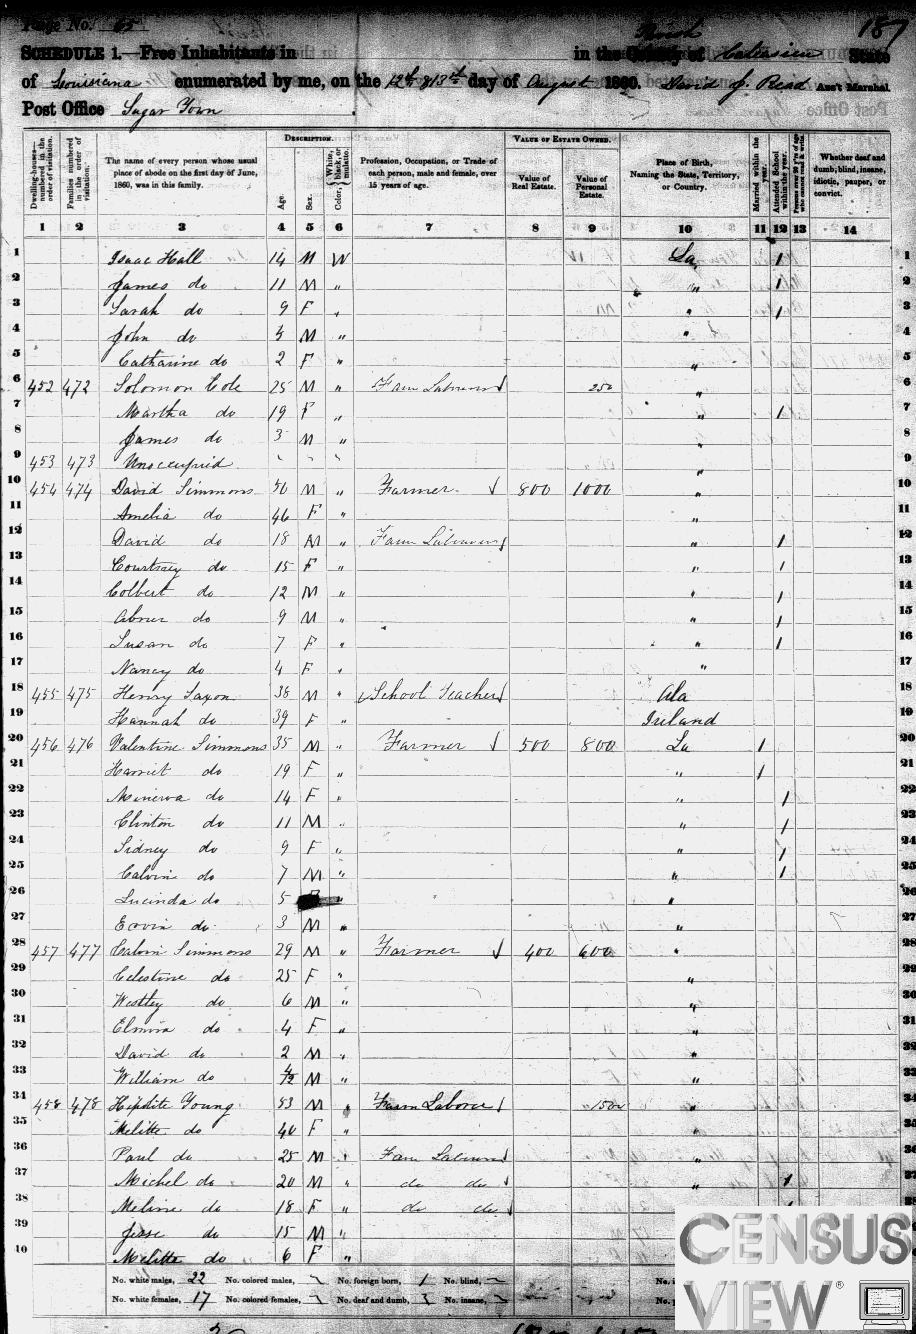 Page No. 65
187
SCHEDULE 1.—Free Inhabitants in in the County of Parish Calcasieu State
of Louisiana enumerated by me, on the 12th & 13th day of August 1860. David J. Reid Ass't Marshal.
Post Office Sugar Town
Dwelling-houses—numbered in the order of visitation.
Families numbered in the order of visitation.
The name of every person whose usual place of abode on the first day of June, 1860, was in this family.
DESCRIPTION.
Age.
Sex.
Color, White, black, or mulatto.
Profession, Occupation, or Trade of each person, male and female, over 15 years of age.
VALUE OF ESTATE OWNED.
Value of Real Estate.
Value of Personal Estate.
Place of Birth, Naming the State, Territory, or Country.
Married within the year.
Attended School within the year.
Persons over 20 y'rs of age who cannot read & write.
Whether deaf and dumb, blind, insane, idiotic, pauper, or convict.
1 2 3 4 5 6 7 8 9 10 11 12 13 14
1 Isaac Hall 14 M W La 1 1
2 James do 11 M " " 1 2
3 Sarah do 9 F " " 1 3
4 John do 5 M " " 4
5 Catharine do 2 F " " 5
6 452 472 Solomon Cole 25 M " Farm Laborer 250 " 6
7 Martha do 19 F " " 1 7
8 James do 3 M " " 8
9 453 473 Unoccupied " " " " 9
10 454 474 David Simmons 50 M " Farmer 800 1000 " 10
11 Amelia do 46 F " " 11
12 David do 18 M " Farm Laborer " 1 12
13 Courtney do 15 F " " 1 13
14 Colbert do 12 M " " 1 14
15 Abner do 9 M " " 1 15
16 Susan do 7 F " " 1 16
17 Nancy do 4 F " " 17
18 455 475 Henry Saxon 38 M " School Teacher Ala 18
19 Hannah do 39 F " Ireland 19
20 456 476 Valentine Simmons 35 M " Farmer 500 800 La 1 20
21 Harriet do 19 F " " 1 21
22 Minerva do 14 F " " 1 22
23 Clinton do 11 M " " 1 23
24 Sidney do 9 F " " 1 24
25 Calvin do 7 M " " 1 25
26 Lucinda do 5 " " 26
27 Ervin do 3 M " " 27
28 457 477 Calvin Simmons 29 M " Farmer 400 600 " 28
29 Celestine do 25 F " " 29
30 Westley do 6 M " " 30
31 Elmira do 4 F " " 31
32 David do 2 M " " 32
33 William do 4/12 M " " 33
34 458 478 Hipolite Young 53 M " Farm Laborer 1500 " 34
35 Melitte do 40 F " " 35
36 Paul do 25 M " Farm Laborer " 36
37 Michel do 20 M " do do " 1 37
38 Meline do 18 F " do do
39 Jesse do 15 M "
40 Melitte do 6 F "
No. white males, 22 No. colored males, No. foreign born, 1 No. blind,
No. white females, 17 No. colored females, No. deaf and dumb, No. insane,
CENSUS
VIEW®